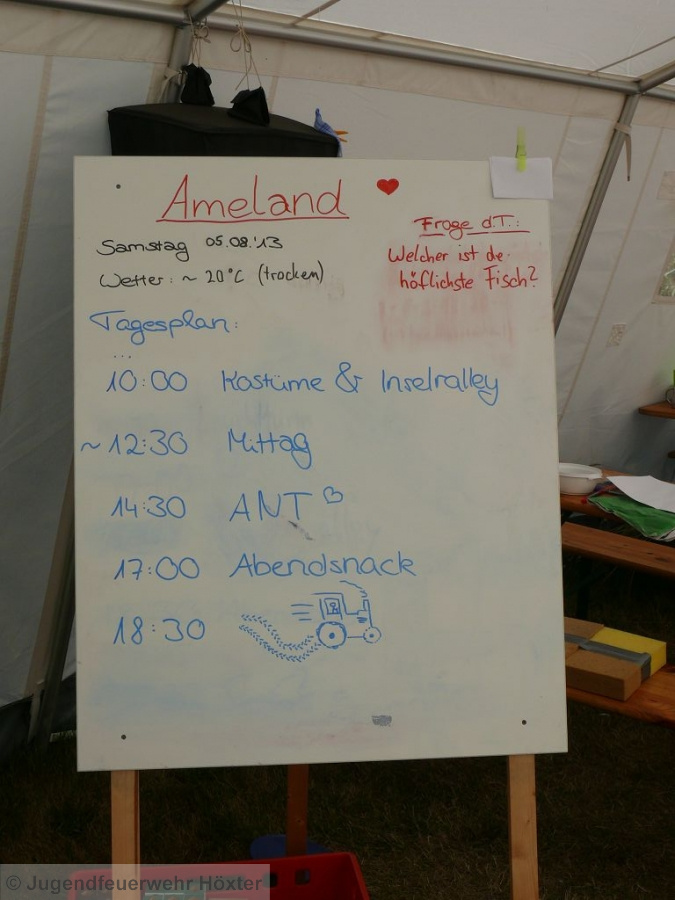 Ameland
Samstag 05.08.'13
Wetter: ~ 20°C (trocken)
Frage d.T.:
Welcher ist de
höflichste Fisch?
Tagesplan:
...
10:00 Kostüme & Inselralley
~12:30 Mittag
14:30 ANT
17:00 Abendsnack
18:30
© Jugendfeuerwehr Höxter